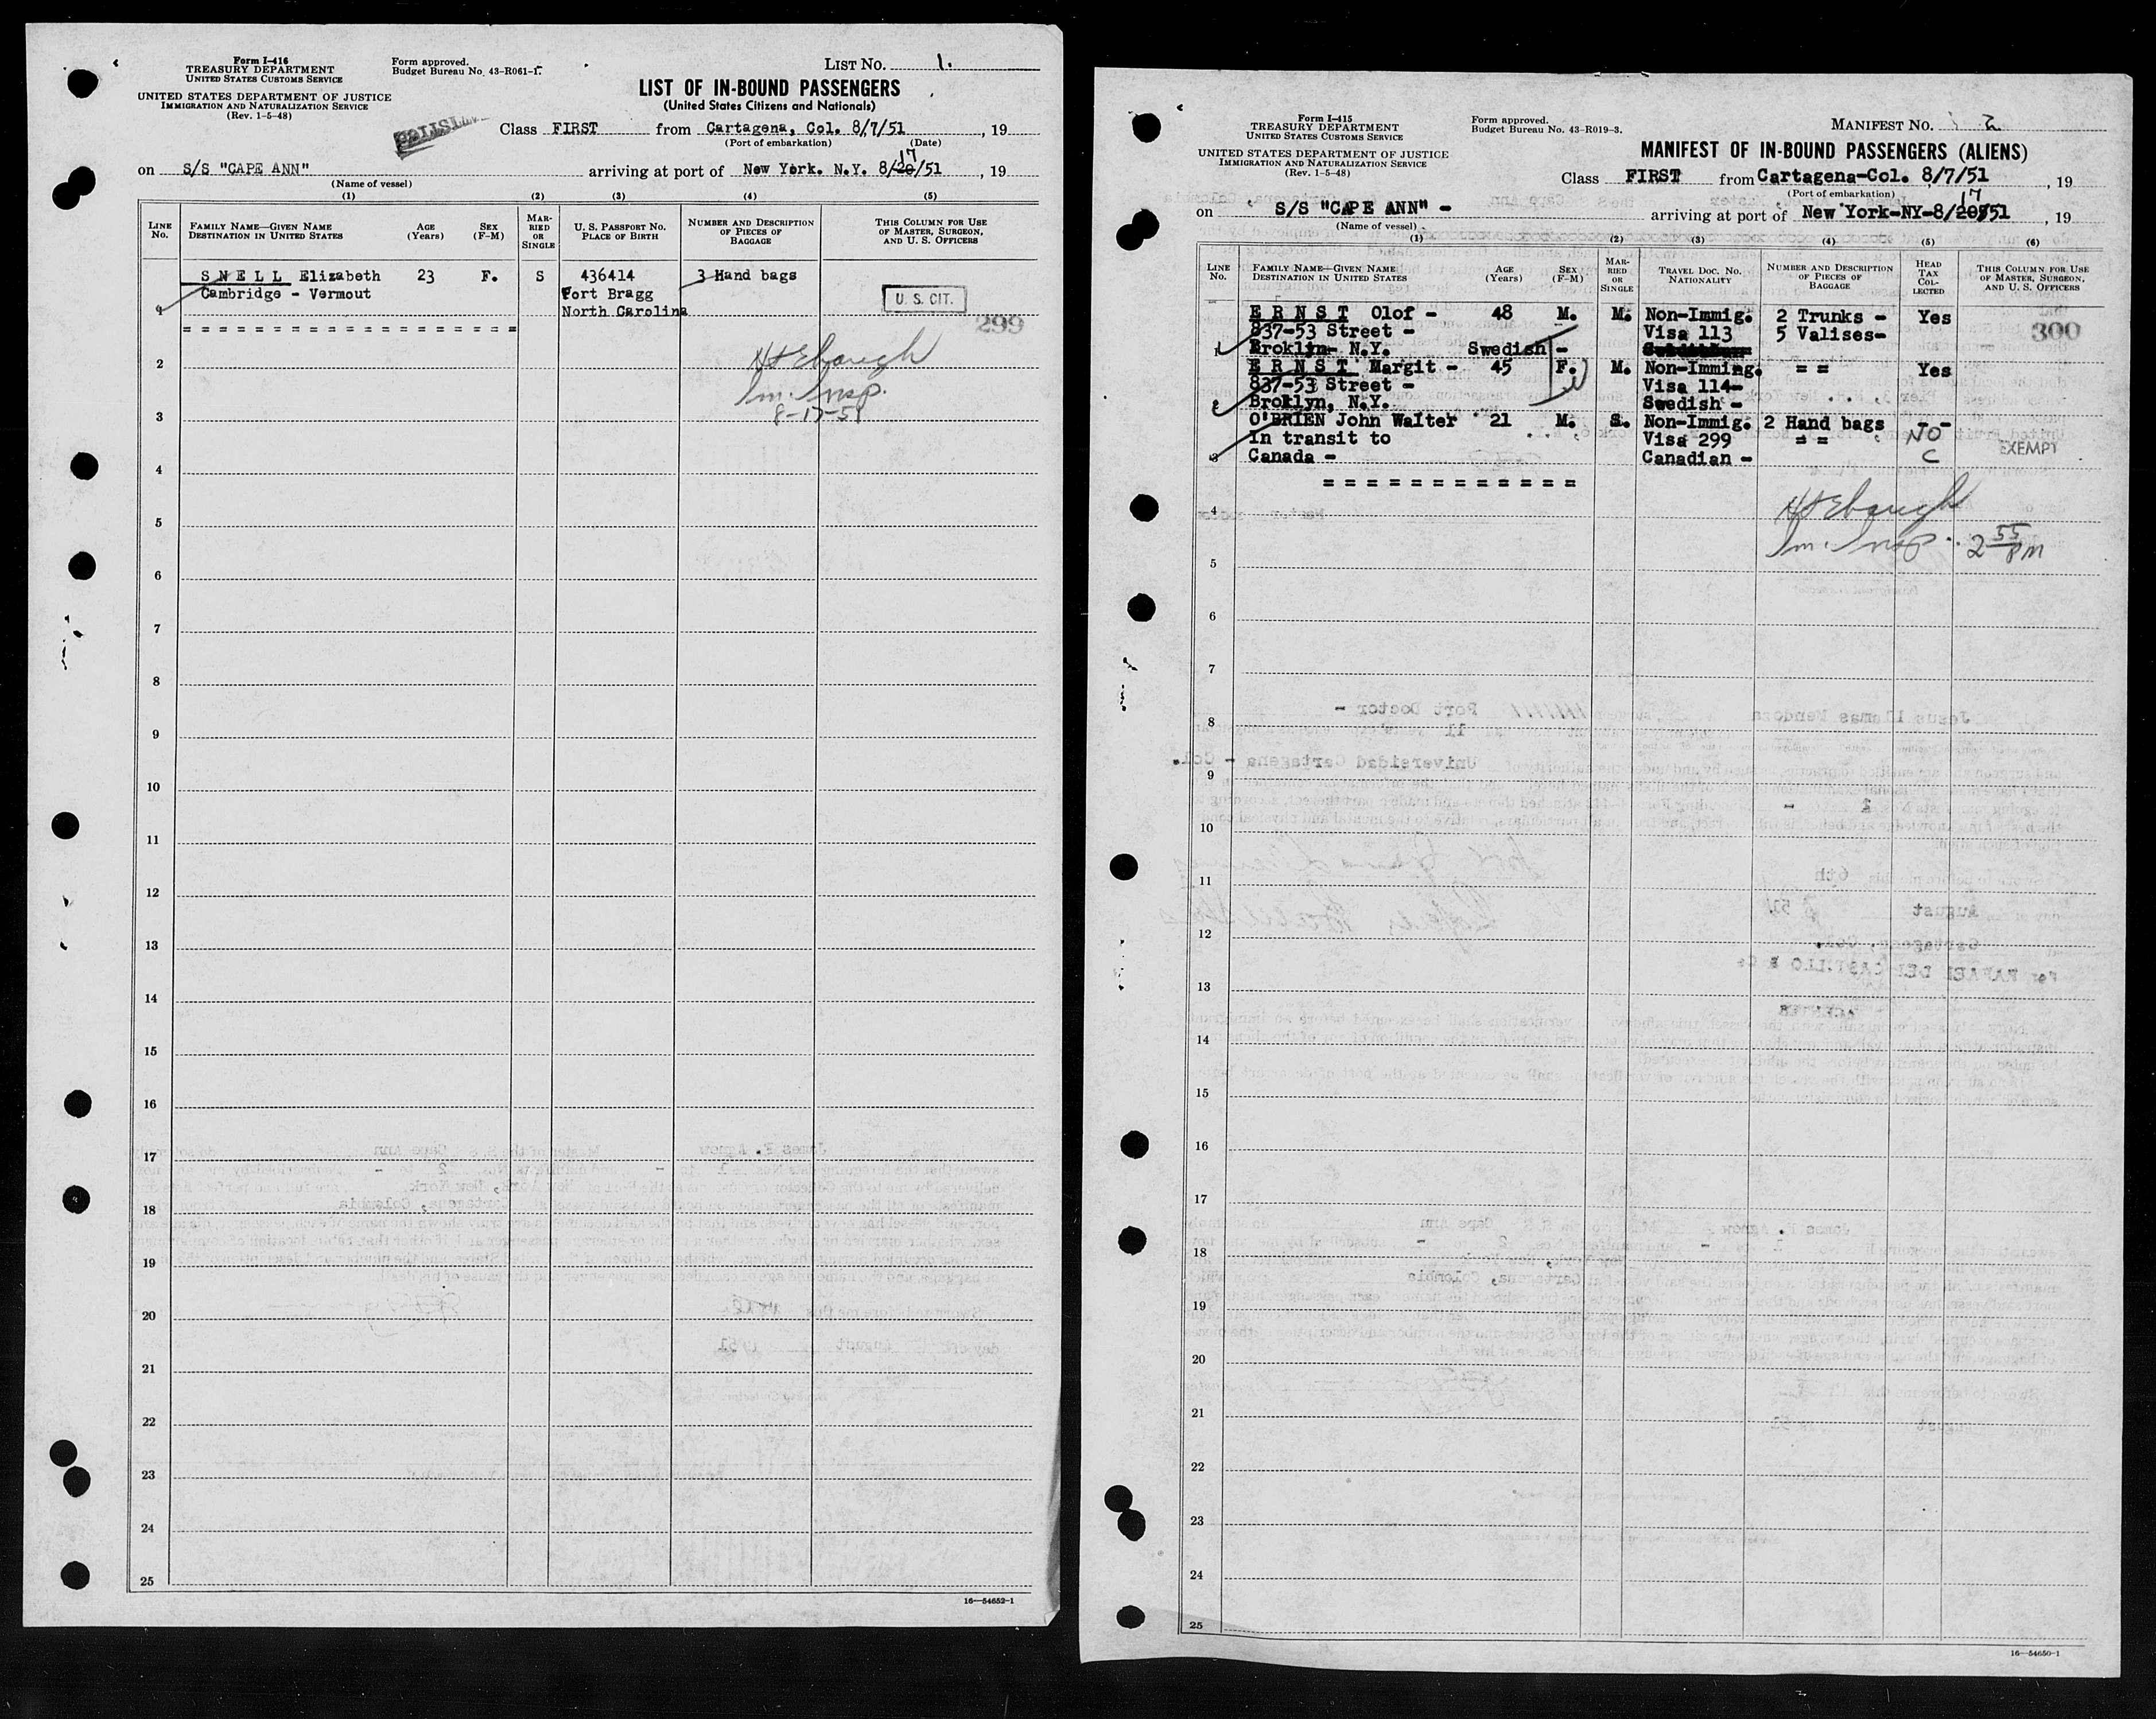 Form I-416
TREASURY DEPARTMENT
UNITED STATES CUSTOMS SERVICE
UNITED STATES DEPARTMENT OF JUSTICE
IMMIGRATION AND NATURALIZATION SERVICE
(Rev. 1-5-48)
Form approved.
Budget Bureau No. 43-R061-1.
LIST NO. 1.
LIST OF IN-BOUND PASSENGERS
(United States Citizens and Nationals)
Class FIRST from Cartagena, Col. 8/7/51, 19
(Port of embarkation) (Date)
17
on S/S "CAPE ANN" arriving at port of New York. N.Y. 8/20/51, 19
(Name of vessel)
(1) (2) (3) (4) (5)
LINE No. FAMILY NAME—GIVEN NAME DESTINATION IN UNITED STATES AGE (Years) SEX (F-M) MARRIED OR SINGLE U. S. PASSPORT NO. PLACE OF BIRTH NUMBER AND DESCRIPTION OF PIECES OF BAGGAGE THIS COLUMN FOR USE OF MASTER, SURGEON, AND U. S. OFFICERS
S N E L L Elizabeth 23 F. S 436414 3 Hand bags
Cambridge - Vermout Fort Bragg U. S. CIT.
1 North Carolina
= = = = = = = = = = = = = = = = = = 299
2 H Ebaugh
Im. Insp.
3 8-17-51
4
5
6
7
8
9
10
11
12
13
14
15
16
17
18
19
20
21
22
23
24
25
16—54652-1
Form I-415
TREASURY DEPARTMENT
UNITED STATES CUSTOMS SERVICE
UNITED STATES DEPARTMENT OF JUSTICE
IMMIGRATION AND NATURALIZATION SERVICE
(Rev. 1-5-48)
Form approved.
Budget Bureau No. 43-R019-3.
MANIFEST NO. 2
MANIFEST OF IN-BOUND PASSENGERS (ALIENS)
Class FIRST from Cartagena-Col. 8/7/51, 19
(Port of embarkation)
17
on S/S "CAPE ANN" - arriving at port of New York-NY-8/20/51, 19
(Name of vessel)
(1) (2) (3) (4) (5) (6)
LINE No. FAMILY NAME—GIVEN NAME DESTINATION IN UNITED STATES AGE (Years) SEX (F-M) MARRIED OR SINGLE TRAVEL DOC. NO. NATIONALITY NUMBER AND DESCRIPTION OF PIECES OF BAGGAGE HEAD TAX COLLECTED THIS COLUMN FOR USE OF MASTER, SURGEON, AND U. S. OFFICERS
E R N S T Olof - 48 M. M. Non-Immig. 2 Trunks - Yes
837-53 Street - Visa 113 5 Valises- 300
1 Broklin- N.Y. Swedish -
E R N S T Margit - 45 F. M. Non-Imming. = = Yes
837-53 Street - Visa 114-
2 Broklyn, N.Y. Swedish -
O'BRIEN John Walter 21 M. S. Non-Immig. 2 Hand bags - -
In transit to Visa 299 = = NO
3 Canada - Canadian - C EXEMPT
= = = = = = = = = = = =
4 H Ebaugh
Im. Insp. 2 55 PM
5
6
7
8
9
10
11
12
13
14
15
16
17
18
19
20
21
22
23
24
25
16—54650-1